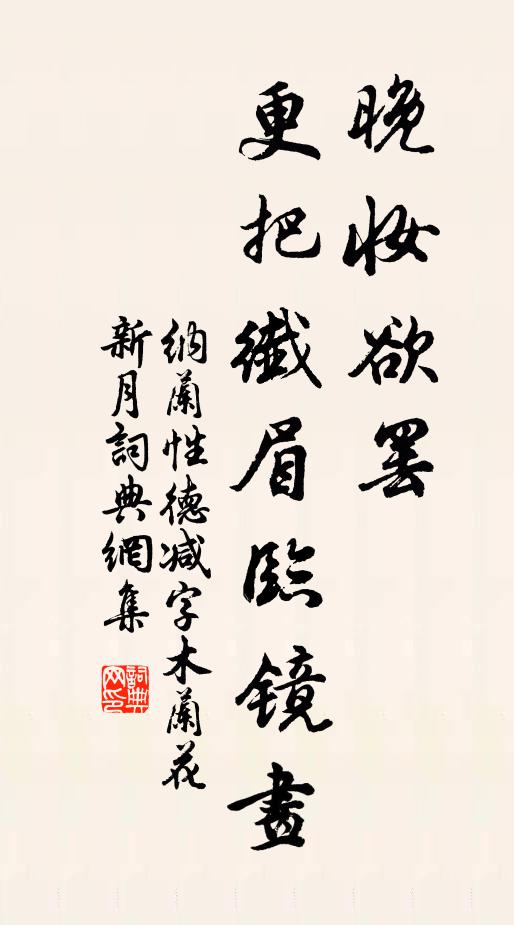 晚妆欲罢
更把纖眉臨鏡畫
納蘭性德减字木蘭花
新月詞典網集
詞典网印